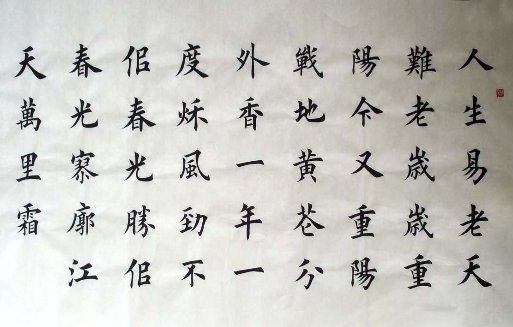 人生易老天
難老歲歲重
陽今又重陽
戰地黃花分
外香一年一
度秋風勁不
佀春光勝佀
春光寥廓江
天萬里霜